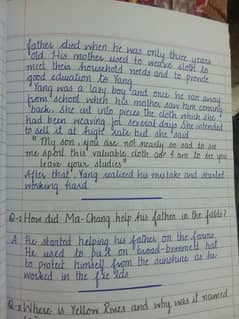 father died when he was only three years
old. His mother used to weave cloth to
meet their household needs and to provide
good education to Yang
Yang was a lazy boy and once he ran away
from school when his mother saw him coming
back. She cut into pieces the cloth which she
had been weaving for several days She intended
to sell it at high rate but she said
"My son, you are not nearly so sad to see
me spoil this valuable cloth as I am to see you
leave your studies"
After that Yang realized his mistake and started
working hard
Q-1 How did Ma-Chang help his father in the fields?
A. He started helping his father on the farms.
He used to put on broad-brimmed hat
to protect himself from the sunshine as he
worked in the fields
Q-2 Where is Yellow Roses and why was it named